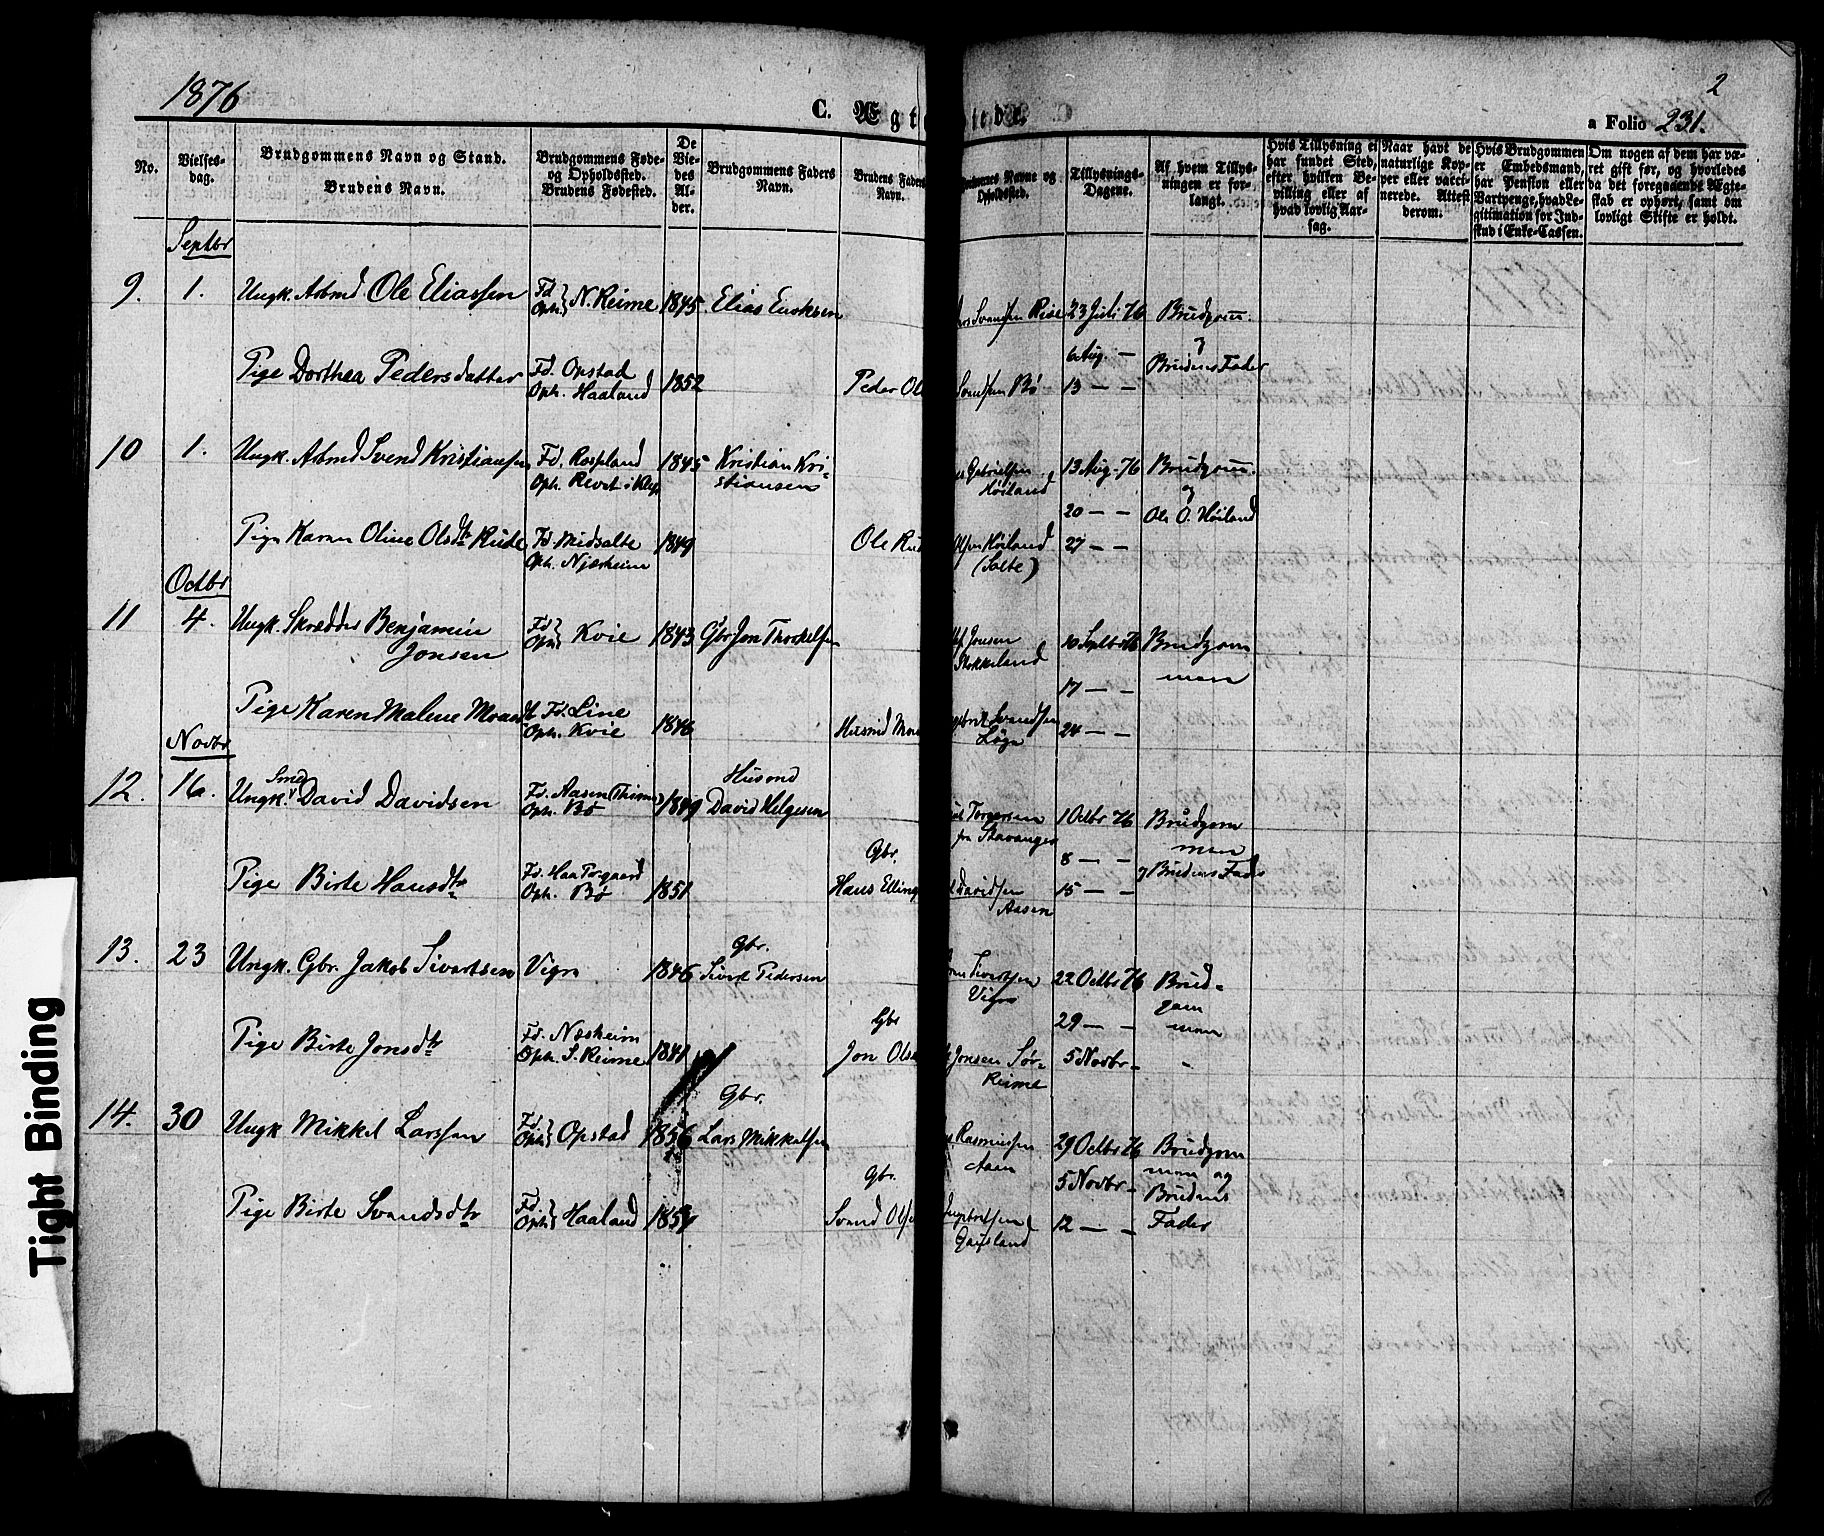 1876
C. Ægt
iede.
2
a Folio 231.
No.
Vielses-
dag.
Brudgommens Navn og Stand.
Brudens Navn.
Brudgommens Føde-
og Opholdssted.
Brudens Fødested.
De
Vie-
des
Al-
der.
Brudgommens Faders
Navn.
Brudens Faders
Navn.
Navne og
Opholdssted.
Tillysnings-
Dagene.
Af hvem Tillys-
ningen er for-
langt.
Hvis Tillysning ei
har fundet Sted,
efter hvilken Be-
villing eller af
hvad lovlig Aar-
sag.
Naar havt de
naturlige Kop-
per eller vacci-
nerede. Attest
derom.
Hvis Brudgommen
er Embedsmand,
har Pension eller
Vartpenge, hvad Le-
gitimation for Ind-
skud i Enke-Cassen.
Om nogen af dem har væ-
ret gift før, og hvorledes
da det foregaaende Ægte-
skab er ophørt, samt om
lovligt Skifte er holdt.
Septbr
9. 1. Ungk. Arbmd Ole Eliassen Fd. Oph. N. Reime 1845 Elias
Svendsen Rise 23 Juli 76 Brudgom.
6 Aug. — og
Pige Dorthea Pedersdatter Fd. Opstad
Oph. Haaland 1852 Peder Ol
Svendsen Bø 13 — — Brudens Fader
10 1. Ungk. Arbmd Svend Kristiansen Fd. Rosland
Oph. Revet i Klep 1845 Kristian Kri-
stiansen
Gabrielsen
Høiland 13 Aug. 76 Brudgom.
20 — — og
Ole O. Høiland
Pige Karen Oline Olsdtr Rude Fd. Midsalte
Oph. Njærheim 1849 Ole Rud
Olsen Høiland
(Salte) 27 — —
Octbr
11 4. Ungk. Skrædder Benjamin
Jonsen Fd. Oph. Kvie 1843 Gbr Jon Thorkelsen
Jonsen
Stokkeland 10 Septbr 76 Brudgom
men
17 — —
Pige Karen Malene Fd. Line
Oph. Kvie 1846 Husmd
Svendsen
Løge 24 — —
Novbr
12. 16. Ungk. Smed David Davidsen Fd. Aasen (Thime)
Oph. Bø 1849 Husmd
David Helgesen
Torgersen
fra Stavanger 1 Octbr 76 Brudgom
men
8 — —
Pige Birte Hansdtr Fd. Haa Torgaard
Oph. Bø 1851 Gbr.
Hans Elling
Davidsen
Aasen 15 — — og Brudens Fader
13. 23 Ungk. Gbr. Jakob Sivertsen Vigre 1846 Gbr.
Sivert Pedersen
Sivertsen
Vigre 22 Octbr 76 Brud-
gom
men
29 — —
Pige Birte Jonsdtr Fd. Næsheim
Oph. S. Reime 1841 Gbr
Jon Olse
Jonsen Sør-
Reime 5 Novbr —
14. 30 Ungk Mikkel Larssen Fd. Oph. Opstad 1856 Gbr.
Lars Mikkelsen
Rasmussen
29 Octbr 76 Brudgom
men og
5 Novbr — Brudens
Pige Birte Svendsdtr Fd. Oph. Haaland Gbr.
Svend Olse
12 — — Fader
Tight Binding